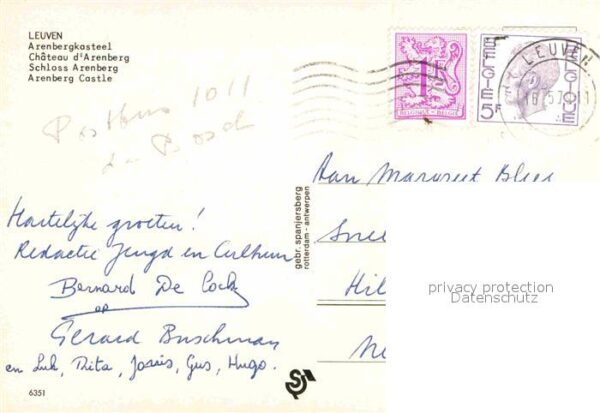 LEUVEN
Arenbergkasteel
Château d'Arenberg
Schloss Arenberg
Arenberg Castle
Postbus 1011
den Bosch
Hartelijke groeten!
Redactie Jeugd en Cultuur
Bernard De Cock
op
Gerard Buschman
en Luk, Rita, Joris, Gus, Hugo.
6351
gebr. spanjersberg
rotterdam - antwerpen
1F
BELGIQUE - BELGIË
BELGIE 5F
BELGIQUE
LEUVEN
Aan Margreet
Hil
privacy protection
Datenschutz